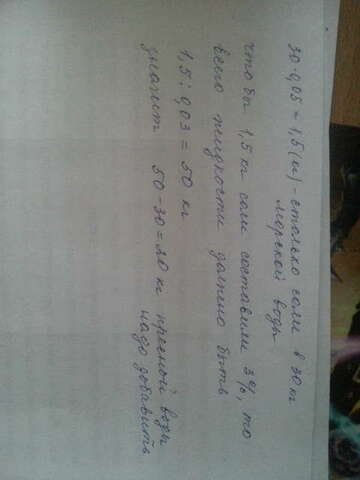 30·0,05 = 1,5 (кг) - столько соли в 30 кг
морской воды
чтобы 1,5 кг соли составили 3%, то
всего жидкости должно быть
1,5 : 0,03 = 50 кг
значит 50-30 = 20 кг пресной воды
надо добавить